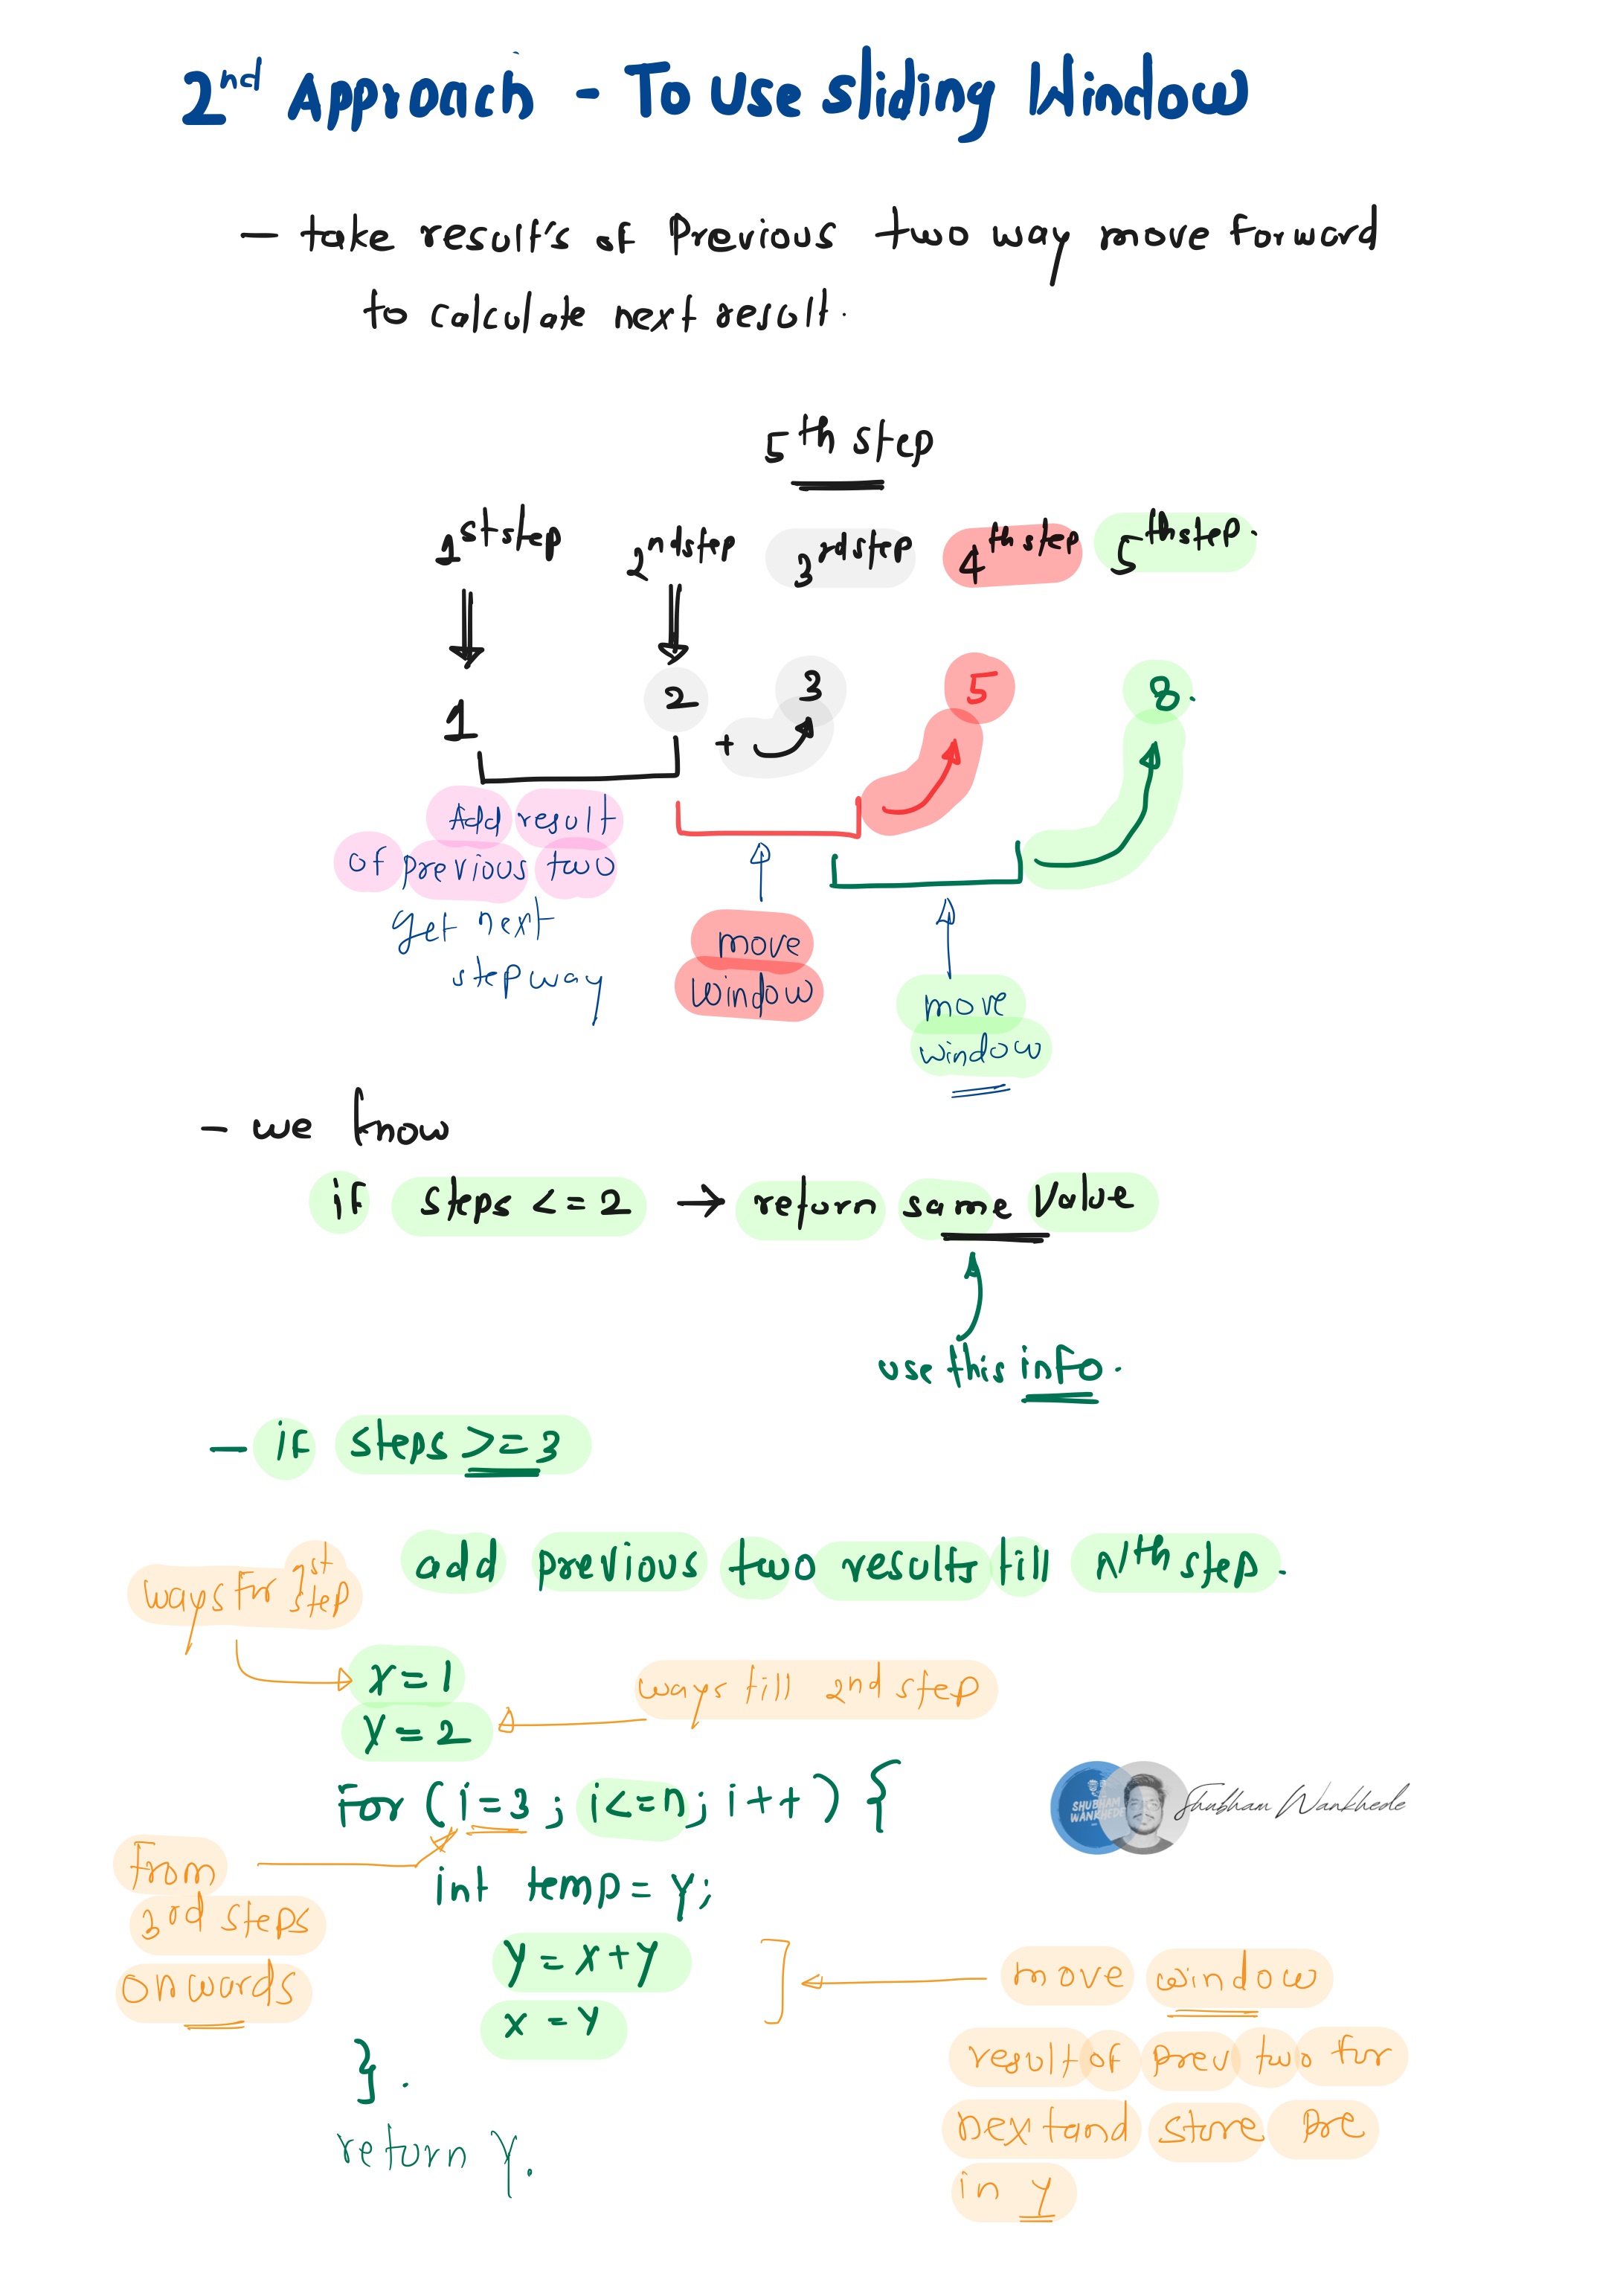 2nd Approach - To Use sliding Window
- take result's of Previous two way move forward
to calculate next result.
5th step
1st step 2nd step 3rd step 4th step 5th step.
1 2 + 3 5 8.
Add result
of previous two
get next
step way
move
window
move
window
- we know
if steps <= 2 → return same value
use this info.
- if steps >= 3
add previous two results till Nth step.
ways for 1st step
x = 1
ways till 2nd step
y = 2
for (i=3; i<=n; i++) {
From
3rd steps
onwards
int temp = y;
y = x+y
x = y
move window
result of prev two for
next and store pre
in y
}.
return y.
SHUBHAM
WANKHEDE
Shubham Wankhede